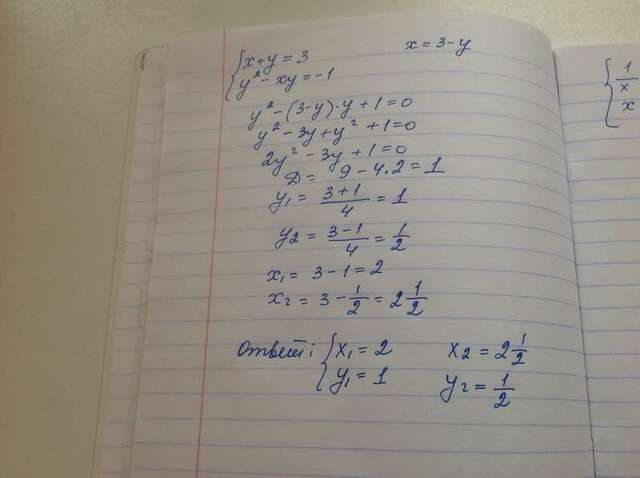 {x+y=3 x=3-y
y²-xy=-1
y²-(3-y)·y+1=0
y²-3y+y²+1=0
2y²-3y+1=0
D= 9-4·2=1
y₁= (3+1)/4 =1
y₂= (3-1)/4 = 1/2
x₁= 3-1=2
x₂= 3-1/2=2 1/2
Ответ: {x₁=2 x₂=2 1/2
y₁=1 y₂=1/2
{1/x
x